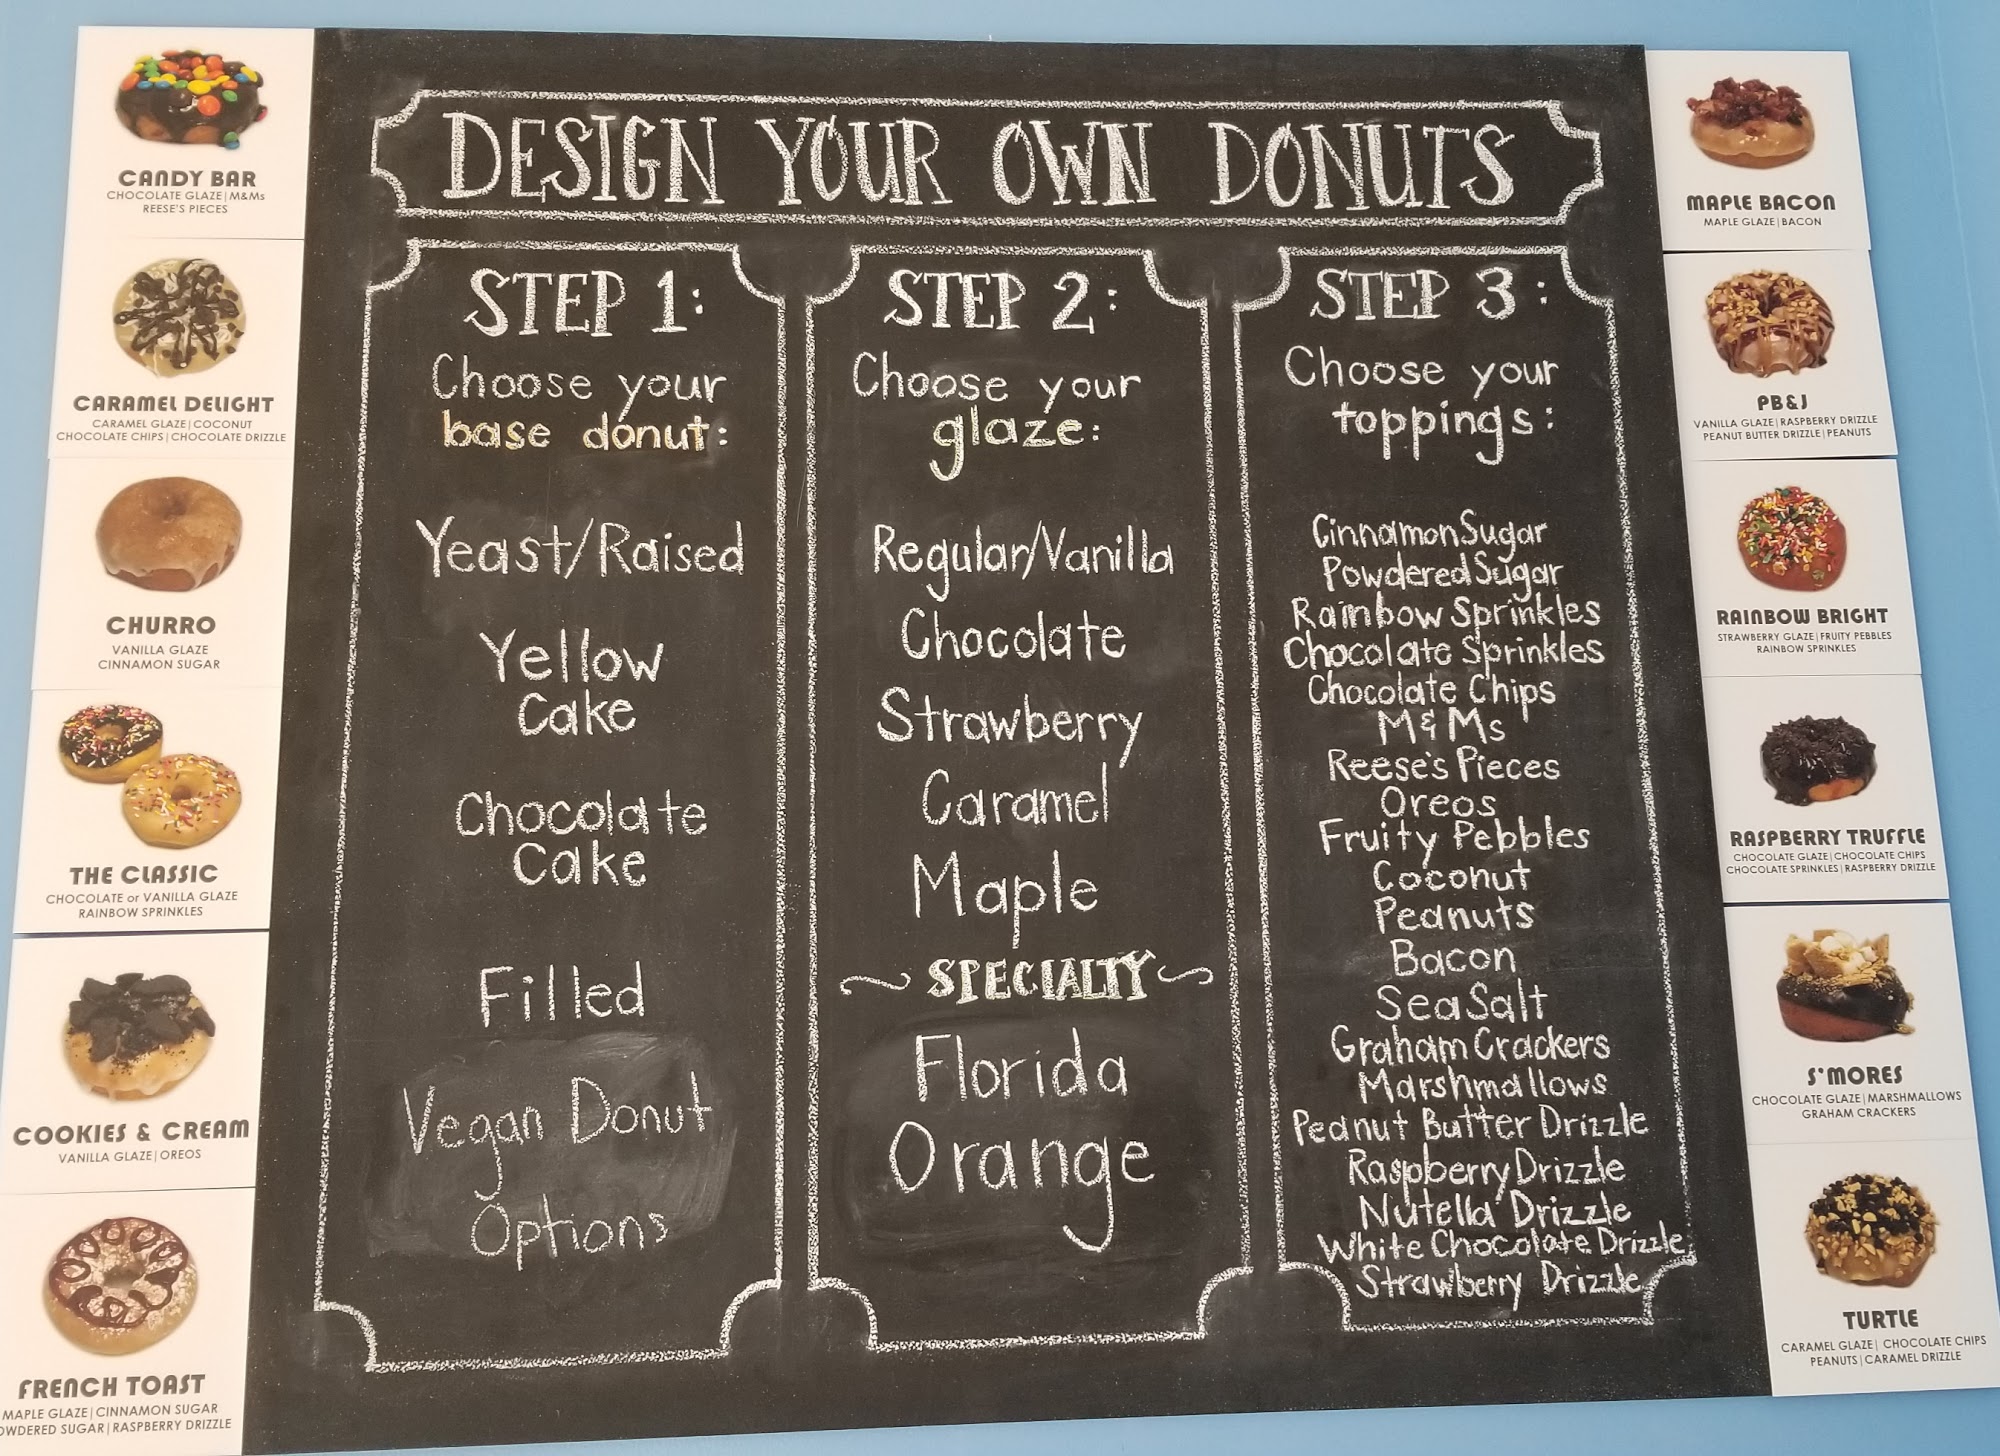 CANDY BAR
CHOCOLATE GLAZE|M&Ms
REESE'S PIECES
CARAMEL DELIGHT
CARAMEL GLAZE|COCONUT
CHOCOLATE CHIPS|CHOCOLATE DRIZZLE
CHURRO
VANILLA GLAZE
CINNAMON SUGAR
THE CLASSIC
CHOCOLATE or VANILLA GLAZE
RAINBOW SPRINKLES
COOKIES & CREAM
VANILLA GLAZE|OREOS
FRENCH TOAST
MAPLE GLAZE|CINNAMON SUGAR
OWDERED SUGAR|RASPBERRY DRIZZLE
DESIGN YOUR OWN DONUTS
STEP 1:
Choose your
base donut:
Yeast/Raised
Yellow
Cake
Chocolate
Cake
Filled
Vegan Donut
Options
STEP 2:
Choose your
glaze:
Regular/Vanilla
Chocolate
Strawberry
Caramel
Maple
SPECIALTY
Florida
Orange
STEP 3:
Choose your
toppings:
Cinnamon Sugar
Powdered Sugar
Rainbow Sprinkles
Chocolate Sprinkles
Chocolate Chips
M&Ms
Reese's Pieces
Oreos
Fruity Pebbles
Coconut
Peanuts
Bacon
Sea Salt
Graham Crackers
Marshmallows
Peanut Butter Drizzle
Raspberry Drizzle
Nutella Drizzle
White Chocolate Drizzle
Strawberry Drizzle
MAPLE BACON
MAPLE GLAZE|BACON
PB&J
VANILLA GLAZE|RASPBERRY DRIZZLE
PEANUT BUTTER DRIZZLE|PEANUTS
RAINBOW BRIGHT
STRAWBERRY GLAZE|FRUITY PEBBLES
RAINBOW SPRINKLES
RASPBERRY TRUFFLE
CHOCOLATE GLAZE|CHOCOLATE CHIPS
CHOCOLATE SPRINKLES|RASPBERRY DRIZZLE
S'MORES
CHOCOLATE GLAZE|MARSHMALLOWS
GRAHAM CRACKERS
TURTLE
CARAMEL GLAZE| CHOCOLATE CHIPS
PEANUTS|CARAMEL DRIZZLE